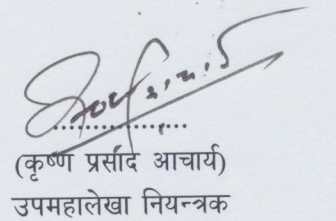 ....................
(कृष्ण प्रसाद आचार्य)
उपमहालेखा नियन्त्रक